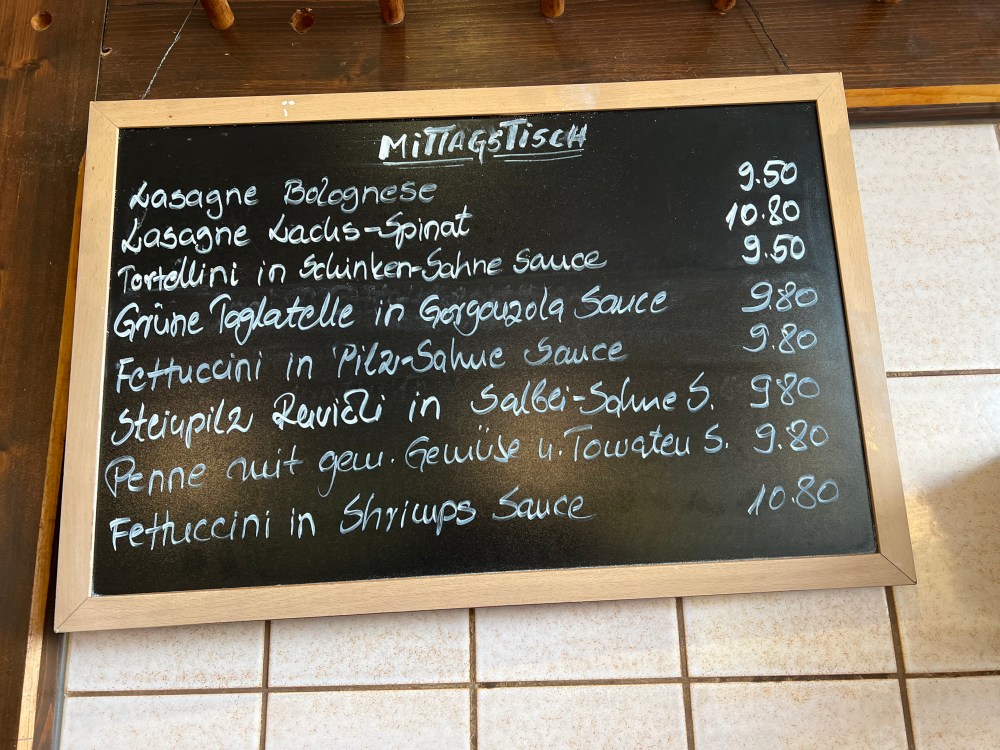 MiTTAGSTiSCH
Lasagne Bolognese 9.50
Lasagne Lachs-Spinat 10.80
Tortellini in Schinken-Sahne Sauce 9.50
Grüne Tagliatelle in Gorgonzola Sauce 9.80
Fettuccini in Pilz-Sahne Sauce 9.80
Steinpilz Ravioli in Salbei-Sahne S. 9.80
Penne mit gem. Gemüse u. Tomaten S. 9.80
Fettuccini in Shrimps Sauce 10.80